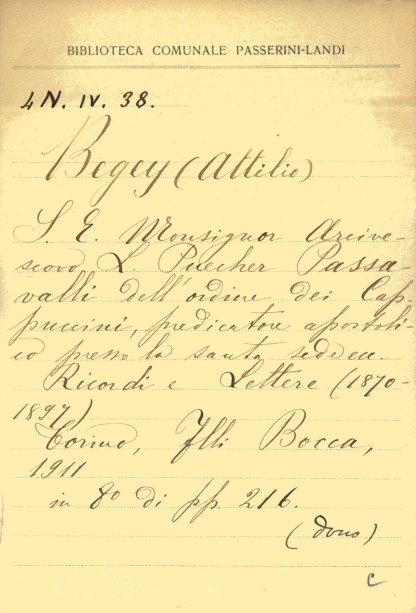 BIBLIOTECA COMUNALE PASSERINI-LANDI
4N. IV. 38.
Begey (Attilio)
S. E. Monsignor Arcive-
scovo L. Puecher Passa-
valli dell'ordine dei Cap-
puccini, predicatore apostoli-
co presso la santa sede ecc.
Ricordi e Lettere (1870-
1897)
Torino, Flli Bocca,
1911
in 8o di pp. 216.
(dono)
C